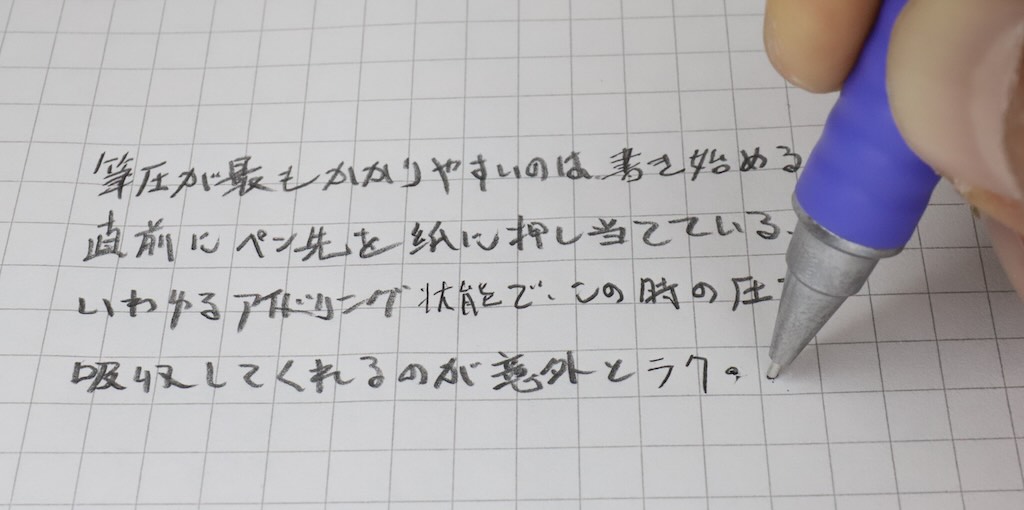 筆圧が最もかかりやすいのは書き始める
直前にペン先を紙に押し当てている、
いわゆるアイドリング状態で、この時の圧
吸収してくれるのが意外とラク。